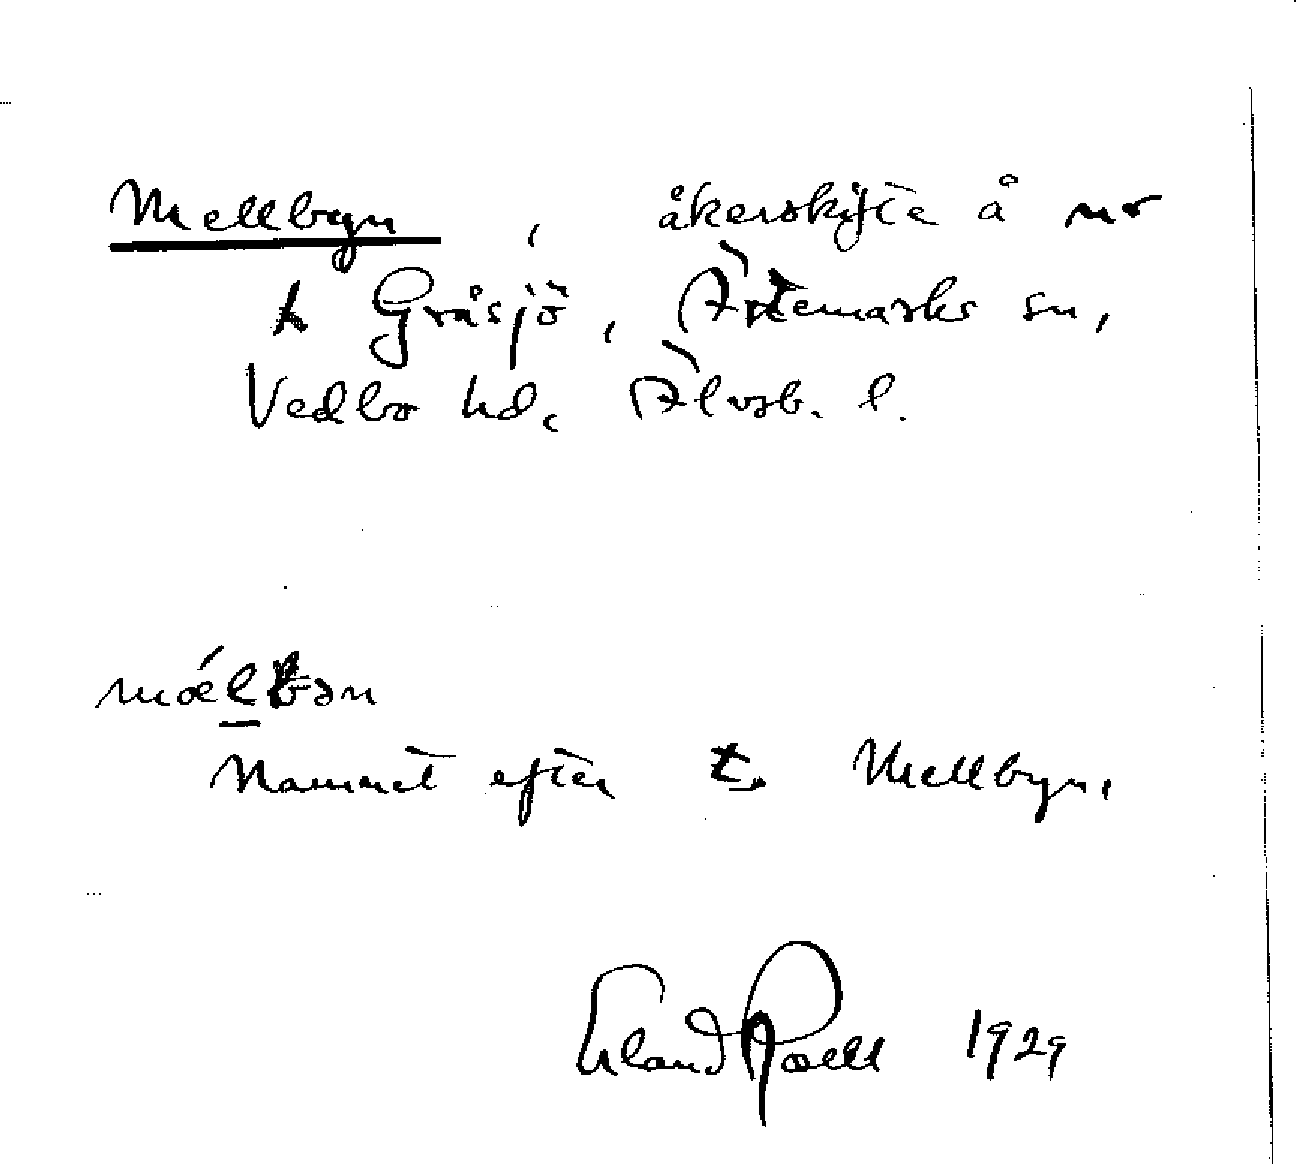 Mellbyn, åkerskifte å nr
1 Gråsjö, Ärtemarks sn,
Vedbo hd, Älvsb. l.
mǽlbən
Namnet efter t. Mellbyn.
Erland Rosell 1929